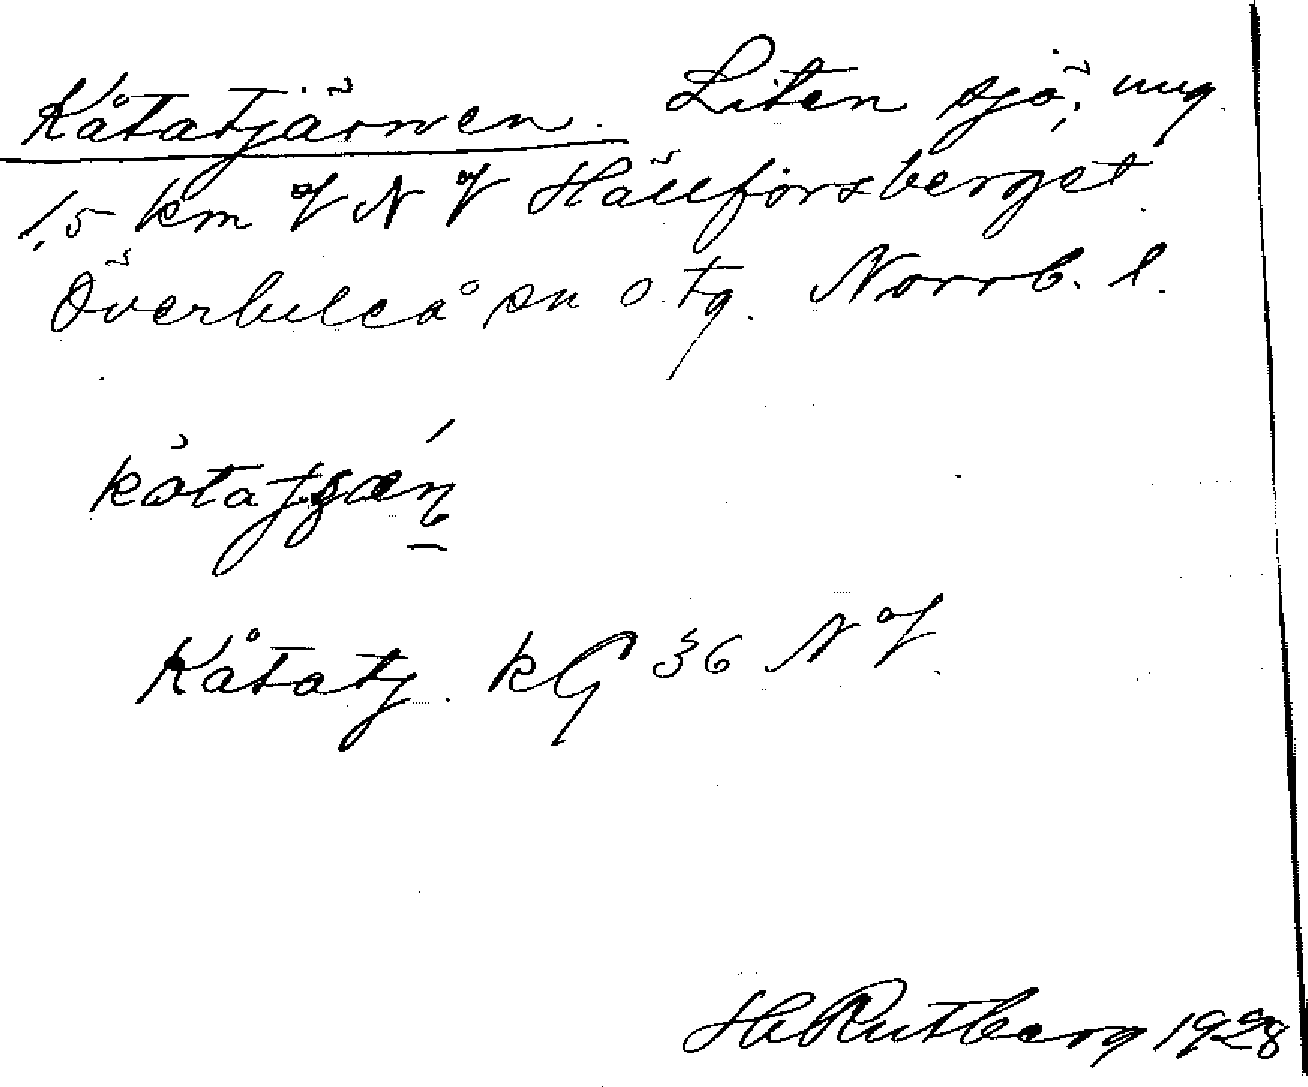 Kåtatjärnen. Liten sjö, ung.
1,5 km N Hällforsberget
Överluleå sn o. tg. Norrb. l.
Kåtatj. kG 36 N
H Rutberg 1928